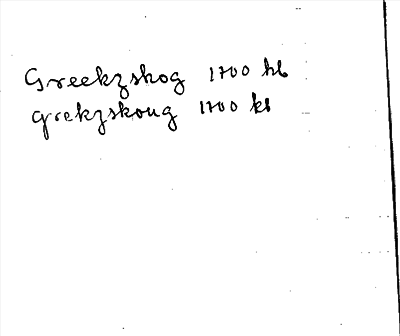 Greekzskog 1700 kl
grekzskoug 1700 kl